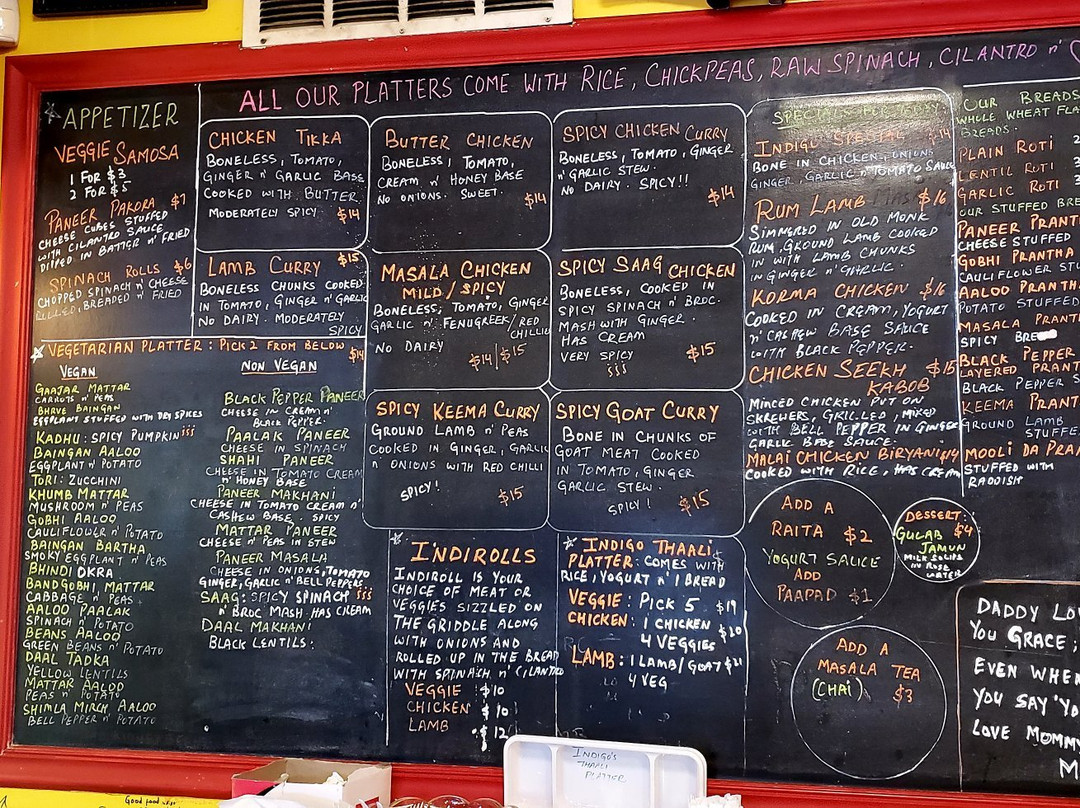 ALL OUR PLATTERS COME WITH RICE, CHICKPEAS, RAW SPINACH, CILANTRO n'
APPETIZER
VEGGIE SAMOSA
1 FOR $3
2 FOR $5
PANEER PAKORA $7
CHEESE CUBES STUFFED
WITH CILANTRO SAUCE
DIPPED IN BATTER n' FRIED
SPINACH ROLLS $6
CHOPPED SPINACH n' CHEESE
ROLLED, BREADED n' FRIED
CHICKEN TIKKA
BONELESS, TOMATO,
GINGER n' GARLIC BASE
COOKED WITH BUTTER.
MODERATELY SPICY $14
BUTTER CHICKEN
BONELESS, TOMATO,
CREAM n' HONEY BASE
NO ONIONS. SWEET. $14
SPICY CHICKEN CURRY
BONELESS, TOMATO, GINGER
n' GARLIC STEW.
NO DAIRY. SPICY!!
$14
LAMB CURRY $15
BONELESS CHUNKS COOKED
IN TOMATO, GINGER n' GARLIC
NO DAIRY. MODERATELY
SPICY
MASALA CHICKEN
MILD/SPICY
BONELESS, TOMATO, GINGER
GARLIC n' FENUGREEK/RED
CHILLI
NO DAIRY $14/$15
SPICY SAAG CHICKEN
BONELESS, COOKED IN
SPICY SPINACH n' BROC.
MASH WITH GINGER.
HAS CREAM
VERY SPICY $15
SPICY KEEMA CURRY
GROUND LAMB n' PEAS
COOKED IN GINGER, GARLIC
n' ONIONS WITH RED CHILLI
SPICY! $15
SPICY GOAT CURRY
BONE IN CHUNKS OF
GOAT MEAT COOKED
IN TOMATO, GINGER
GARLIC STEW.
SPICY! $15
VEGETARIAN PLATTER: PICK 2 FROM BELOW $14
VEGAN
GAAJAR MATTAR
CARROTS n' PEAS
BHRVE BAINGAN
EGGPLANT STUFFED WITH DRY SPICES
KADHU: SPICY PUMPKIN
BAINGAN AALOO
EGGPLANT n' POTATO
TORI: ZUCCHINI
KHUMB MATTAR
MUSHROOM n' PEAS
GOBHI AALOO
CAULIFLOWER n' POTATO
BAINGAN BARTHA
SMOKY EGGPLANT n' PEAS
BHINDI OKRA
BANDGOBHI MATTAR
CABBAGE n' PEAS
AALOO PAALAK
SPINACH n' POTATO
BEANS AALOO
GREEN BEANS n' POTATO
DAAL TADKA
YELLOW LENTILS
MATTAR AALOO
PEAS n' POTATO
SHIMLA MIRCH AALOO
BELL PEPPER n' POTATO
NON VEGAN
BLACK PEPPER PANEER
CHEESE IN CREAM n'
BLACK PEPPER.
PAALAK PANEER
CHEESE IN SPINACH
SHAHI PANEER
CHEESE IN TOMATO CREAM
n' HONEY BASE
PANEER MAKHANI
CHEESE IN TOMATO CREAM n'
CASHEW BASE. SPICY
MATTAR PANEER
CHEESE n' PEAS IN STEW
PANEER MASALA
CHEESE IN ONIONS, TOMATO
GINGER, GARLIC n' BELL PEPPERS
SAAG: SPICY SPINACH
n' BROC MASH. HAS CREAM
DAAL MAKHANI
BLACK LENTILS.
INDIROLLS
INDIROLL IS YOUR
CHOICE OF MEAT OR
VEGGIES SIZZLED ON
THE GRIDDLE ALONG
WITH ONIONS AND
ROLLED UP IN THE BREAD
WITH SPINACH, n' CILANTRO
VEGGIE $10
CHICKEN $10
LAMB $12
INDIGO THAALI
PLATTER: COMES WITH
RICE, YOGURT n' 1 BREAD
VEGGIE: PICK 5 $19
CHICKEN: 1 CHICKEN
4 VEGGIES $20
LAMB: 1 LAMB/GOAT $21
4 VEG
INDIGO SPECIAL $14
BONE IN CHICKEN, ONIONS
GINGER, GARLIC n' TOMATO SAUCE
RUM LAMB $16
SIMMERED IN OLD MONK
RUM, GROUND LAMB COOKED
IN WITH LAMB CHUNKS
IN GINGER n' GARLIC.
KORMA CHICKEN $16
COOKED IN CREAM, YOGURT
n' CASHEW BASE SAUCE
WITH BLACK PEPPER.
CHICKEN SEEKH $15
KABOB
MINCED CHICKEN PUT ON
SKEWERS, GRILLED, MIXED
WITH BELL PEPPER IN GINGER
GARLIC BASE SAUCE.
MALAI CHICKEN BIRYANI $14
COOKED WITH RICE, HAS CREAM
ADD A
RAITA $2
YOGURT SAUCE
ADD
PAAPAD $1
DESSERT.
GULAB $4
JAMUN
MILK SOLIDS
IN ROSE
WATER
ADD A
MASALA TEA
(CHAI) $3
OUR BREADS
WHOLE WHEAT FLA
BREADS.
PLAIN ROTI 2
LENTIL ROTI 3
GARLIC ROTI 3
OUR STUFFED BRE
PANEER PRANT
CHEESE STUFFED
GOBHI PRANTHA
CAULIFLOWER STU
AALOO PRANTH
POTATO STUFFED
MASALA PRANT
SPICY BRE
BLACK PEPPER
LAYERED PRANT
BLACK PEPPER S
KEEMA PRANT
GROUND LAMB
STUFFE
MOOLI DA PRA
STUFFED WITH
RADDISH
DADDY LO
YOU GRACE;
EVEN WHEN
YOU SAY 'YO
LOVE MOMMY
M
INDIGO'S
THAALI
PLATTER
Good food